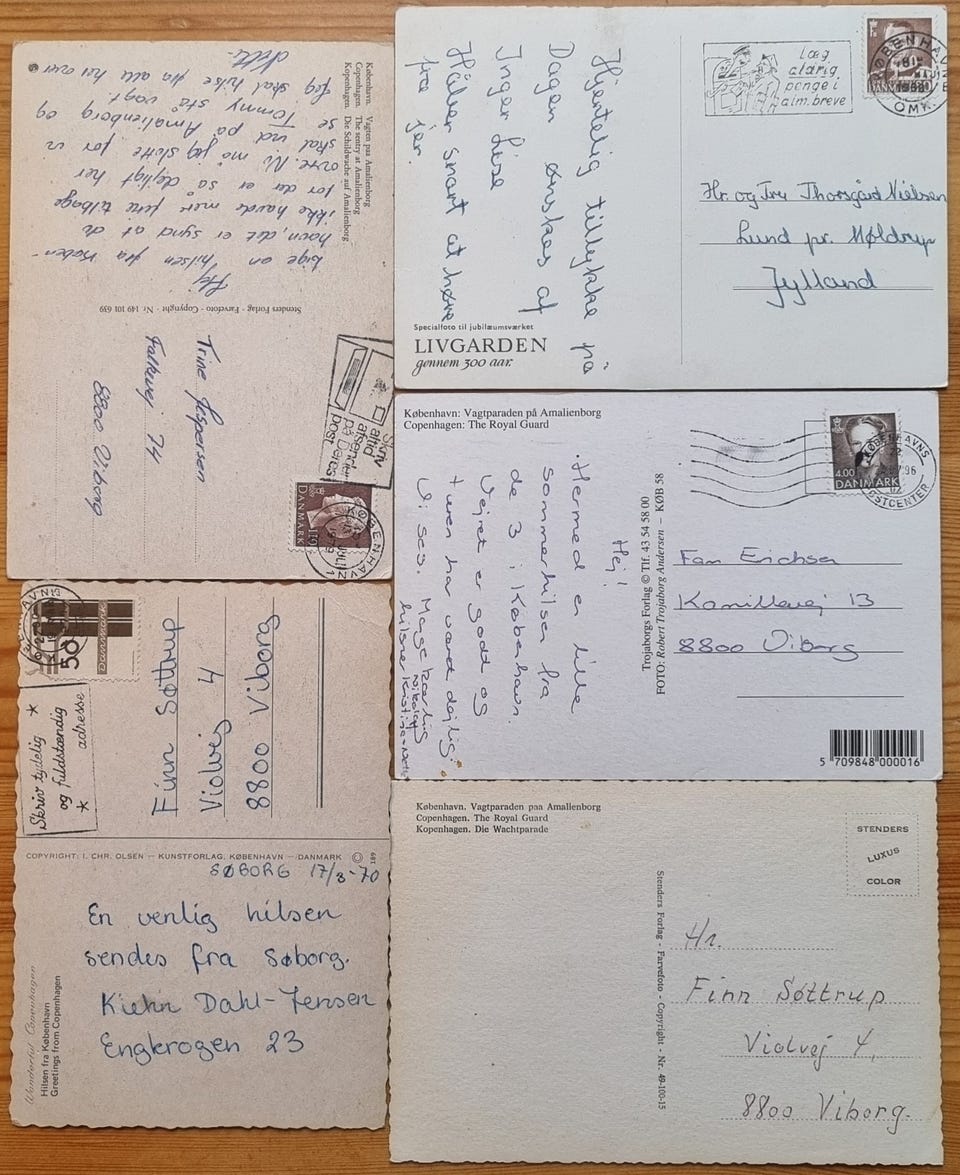 København. Vagten paa Amalienborg
Copenhagen. The sentry at Amalienborg
Kopenhagen. Die Schildwache auf Amalienborg
Stenders Forlag - Farvefoto - Copyright - Nr. 149 101 659
Hej
lige en hilsen fra Køben-
havn, det er synd at du
ikke havde mere ferie tilbage
for der er så dejligt her
ovre. Nu må jeg slutte for vi
skal ind på Amalienborg og
se Tommy stå vagt.
Jeg skal hilse fra alle her over
Trine Jespersen
Falkevej 14
8800 Viborg
Skriv
altid
afsender
på Deres
post
DANMARK
KØBENHAVN
1979
Læg
aldrig
penge i
alm. breve
KØBENHAVN
OMK.
DANMARK
Hjertelig tillykke på
Dagen ønskes af
Inger Lise
Håber snart at høre
fra jer.
Hr. og Fru Thorsgård Nielsen
Lund pr. Møldrup
Jylland
Specialfoto til jubilæumsværket
LIVGARDEN
gennem 300 aar.
København: Vagtparaden på Amalienborg
Copenhagen: The Royal Guard
4.00
DANMARK
KØBENHAVNS
POSTCENTER
Hej!
Hermed en lille
sommerhilsen fra
de 3 i København.
Vejret er godt og
turen har været dejlig.
Vi ses. Mange kærlig
hilsner Kristine
Nikolaj
Trojaborgs Forlag © Tlf. 43 54 58 00
FOTO: Robert Trojaborg Andersen – KØB 58
Fam Erichsen
Kamillevej 13
8800 Viborg
5 709848 000016
50
Danmark
Skriv tydelig
og fuldstændig
adresse
Finn Søttrup
Violvej 4
8800 Viborg
COPYRIGHT: I. CHR. OLSEN — KUNSTFORLAG, KØBENHAVN — DANMARK ©
SØBORG 17/8-70
En venlig hilsen
sendes fra Søborg.
Dahl-Jensen
Engkrogen 23
Wonderful Copenhagen
Hilsen fra København
Greetings from Copenhagen
København. Vagtparaden paa Amalienborg
Copenhagen. The Royal Guard
Kopenhagen. Die Wachtparade
STENDERS
LUXUS
COLOR
Stenders Forlag - Farvefoto - Copyright - Nr. 49-100-15
Hr.
Finn Søttrup
Violvej 4,
8800 Viborg.